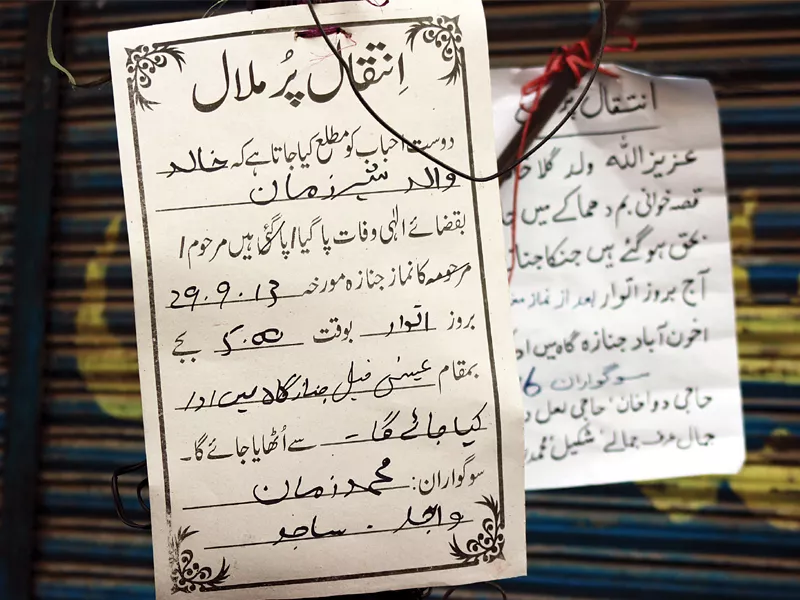 اِنتقال پُر ملال
دوست احباب کو مطلع کیا جاتا ہے کہ خالد
والد شیر زمان
بقضائے الٰہی وفات پا گیا/پا گئی ہیں مرحوم/
مرحومہ کا نماز جنازہ مورخہ 29.9.13
بروز اتوار بوقت 5:00 بجے
بمقام عیسیٰ خیل جنازگاہ میں ادا
کیا جائے گا – سے اُٹھایا جائے گا۔
سوگواران: محمد زمان
واجد . ساجد
انتقال پر
عزیز اللہ ولد گلا
قصہ خوانی بم دھماکے میں
بحق ہو گئے ہیں جنکا جناز
آج بروز اتوار بعد از نماز
اخون آباد جنازہ گاہ میں
سوگواران
حاجی دوا خان' حاجی لعل
جمال عرف جمالے' شکیل' محمد